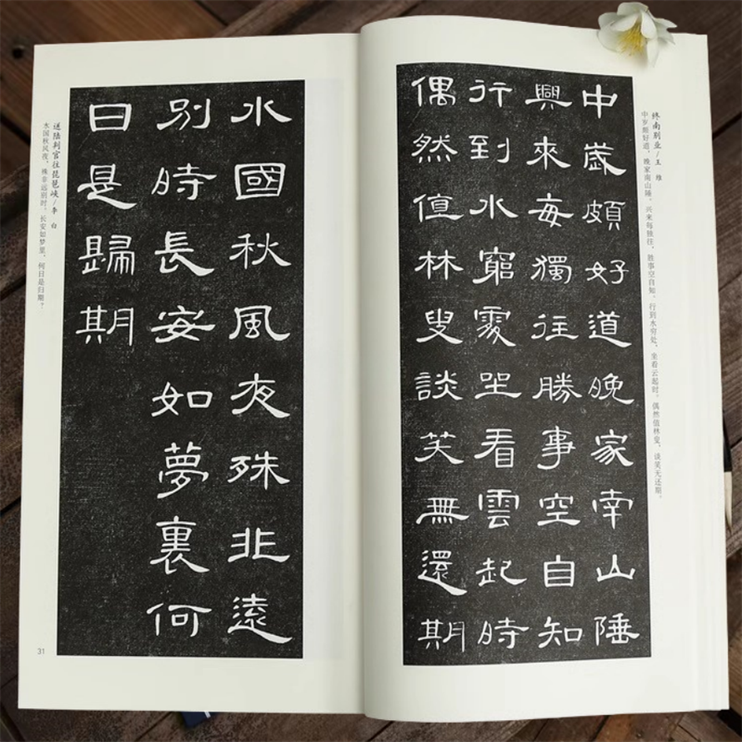 终南别业/王维
中岁颇好道，晚家南山陲。兴来每独往，胜事空自知。行到水穷处，坐看云起时。偶然值林叟，谈笑无还期。
中歲頗好道晚家南山陲
興來每獨往勝事空自知
行到水窮處坐看雲起時
偶然值林叟談笑無還期
水國秋風夜殊非遠
別時長安如夢裏何
日是歸期
送陆判官往琵琶峡/李白
水国秋风夜，殊非远别时。长安如梦里，何日是归期？
31